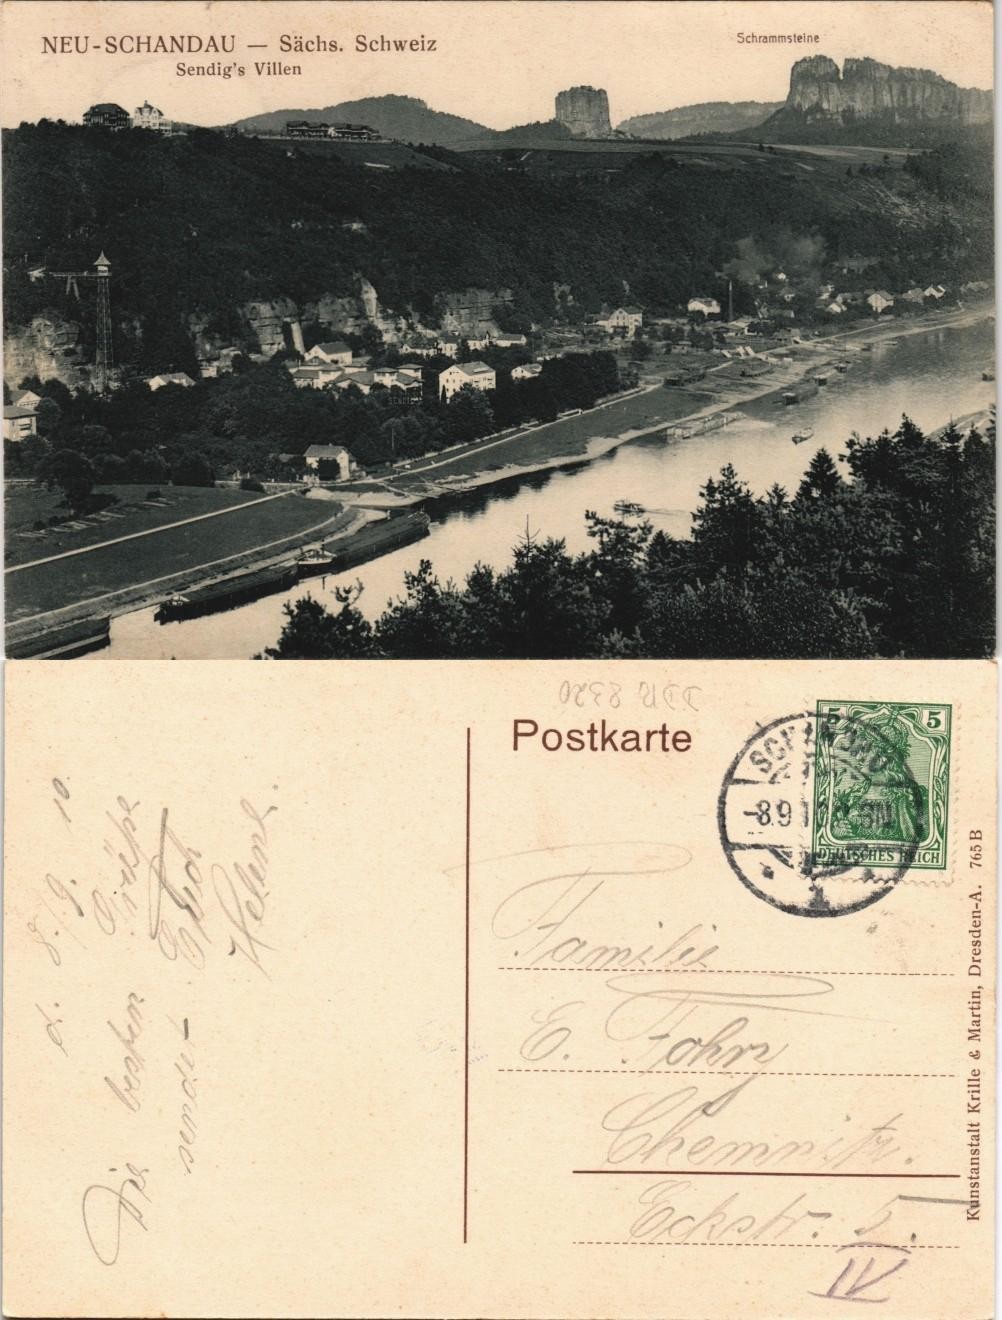 NEU-SCHANDAU — Sächs. Schweiz
Sendig's Villen
Schrammsteine
DDR 8320
Postkarte
5 5
DEUTSCHES REICH
SCHANDAU
-8.9.10. 8-9N
d. 8./9. 10
Die besten Grüße
Helene.
Familie
E. Fohry
Chemnitz.
Eckstr. 5.
IV
Kunstanstalt Krille & Martin, Dresden-A. 765 B